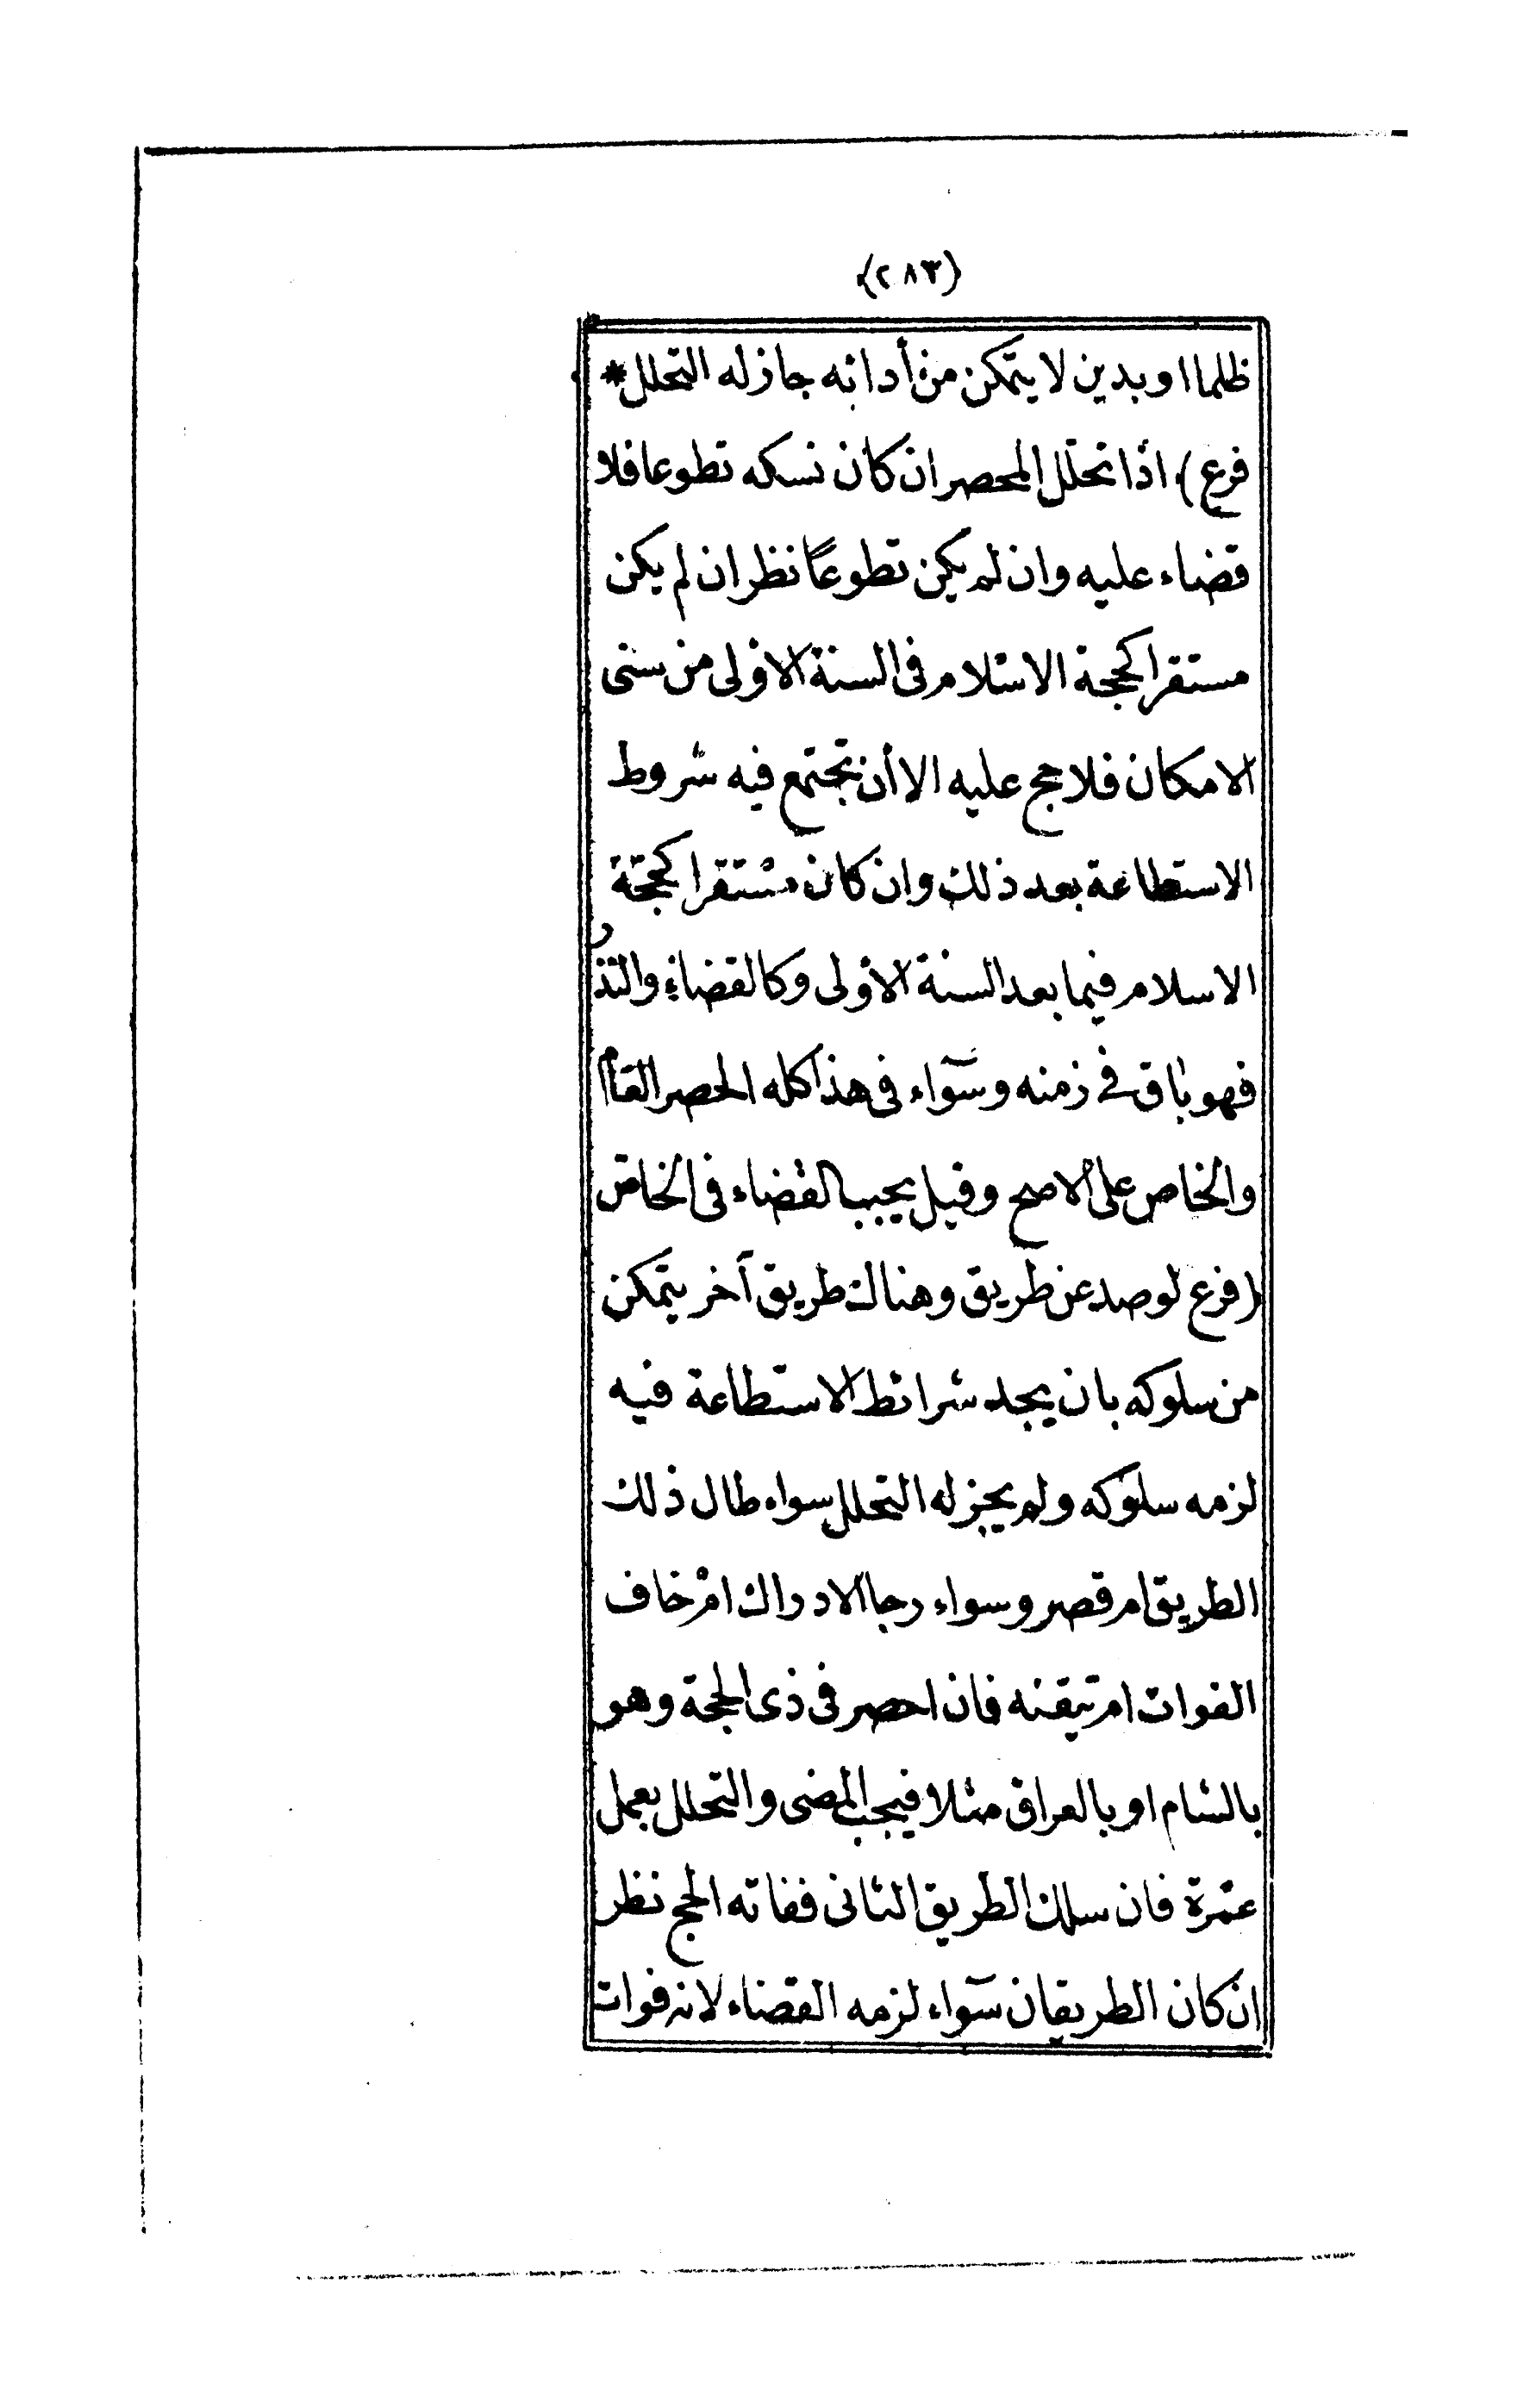 (٢٨٣)
ظلما او بدين لا يتمكن من أدائه جاز له التحلل *
فرع) اذا تحلل المحصر ان كان نسكه تطوعا فلا
قضاء عليه وان لم يكن تطوعًا نظر ان لم يكن
مستقرا كحجة الاسلام فى السنة الاولى من سنى
الامكان فلا حج عليه الا أن تجتمع فيه شروط
الاستطاعة بعد ذلك وان كان مستقرا كحجّة
الاسلام فيما بعد السنة الاولى وكالقضاء والنذر
فهو باق فى ذمنه وسوآء فى هذا كله الحصر العام
والخاص على الاصح وقيل يجب القضاء فى الخاص
(فرع لو صد عن طريق وهناك طريق آخر يتمكن
من سلوكه بان يجد شرائط الاستطاعة فيه
لزمه سلوكه ولم يجز له التحلل سواء طال ذلك
الطريق ام قصر وسواء رجا الادراك امْ خاف
الفوات ام تيقنه فان احصر فى ذى الحجة وهو
بالشام او بالعراق مثلا فيجب المضى والتحلل بعمل
عمرة فان سلك الطريق الثانى ففاته الحج نظر
ان كان الطريقان سوآء لزمه القضاء لانه فوات